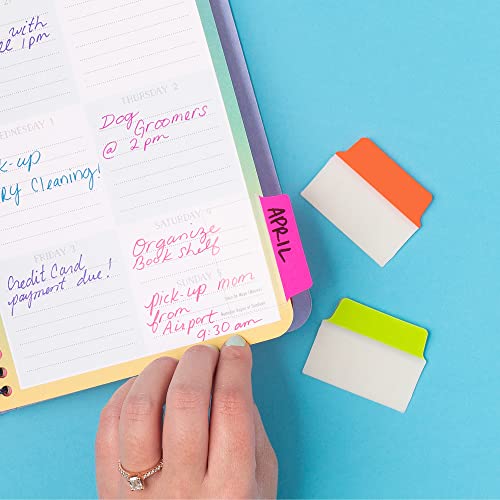 with
1pm
WEDNESDAY 1
k-up
ry Cleaning!
THURSDAY 2
Dog
Groomers
@ 2pm
FRIDAY 3
Credit Card
payment due!
SATURDAY 4
Organize
Book Shelf
SUNDAY 5
pick-up mom
from
Airport
9:30 am
APRIL